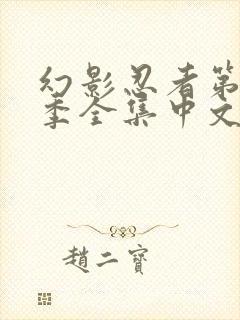 幻影忍者第
季全集中文
趙二寶